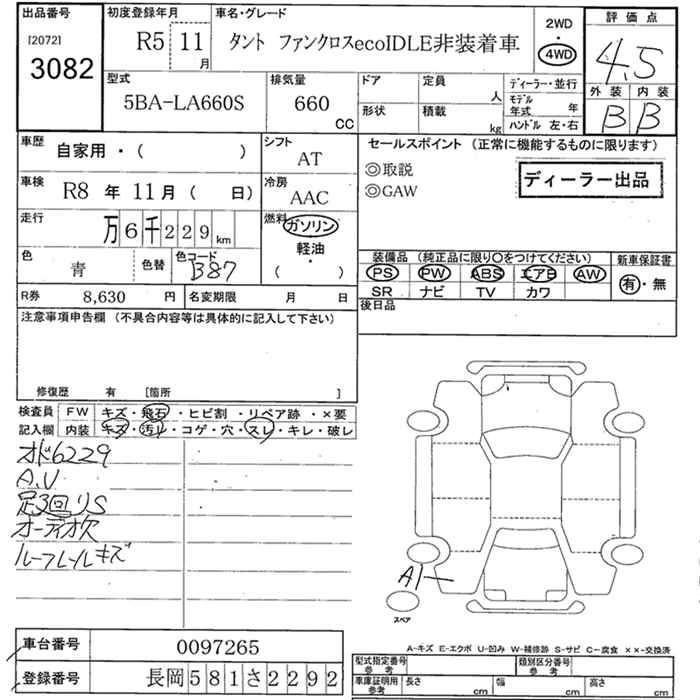 出品番号
[2072]
3082
初度登録年月
R5 11 月
車名・グレード
タント ファンクロスecoIDLE非装着車
2WD
・
4WD
評価点
4.5
外装 内装
B B
型式
5BA-LA660S
排気量
660
CC
ドア
定員
人
形状
積載
kg
ディーラー・並行
モデル年式 年
ハンドル 左・右
車歴
自家用・( )
シフト
AT
車検
R8 年 11月 ( 日)
冷房
AAC
走行
万6千229km
燃料
ガソリン
・
軽油
・
( )
色
青
色替
色コード
B87
R券 8,630 円
名変期限 月 日
セールスポイント (正常に機能するものに限ります)
◎取説
◎GAW
ディーラー出品
装備品 (純正品に限り〇をつけてください)
PS PW ABS エアB AW
SR ナビ TV カワ
新車保証書
有・無
後日品
注意事項申告欄 (不具合内容等は具体的に記入して下さい)
修復歴 有 [箇所 ]
検査員記入欄
FW キズ・飛石・ヒビ割・リペア跡・×要
内装 キズ・汚レ・コゲ・穴・スレ・キレ・破レ
オド6229
A.U
足3回リS
オーディオ欠
ルーフレールキズ
A1
スペア
A-キズ E-エクボ U-凹み W-補修跡 S-サビ C-腐食 ××-交換済
車台番号 0097265
登録番号 長岡581さ2292
型式指定番号 参考
類別区分番号 参考
車庫証明用 参考
長さ cm
幅 cm
高さ cm